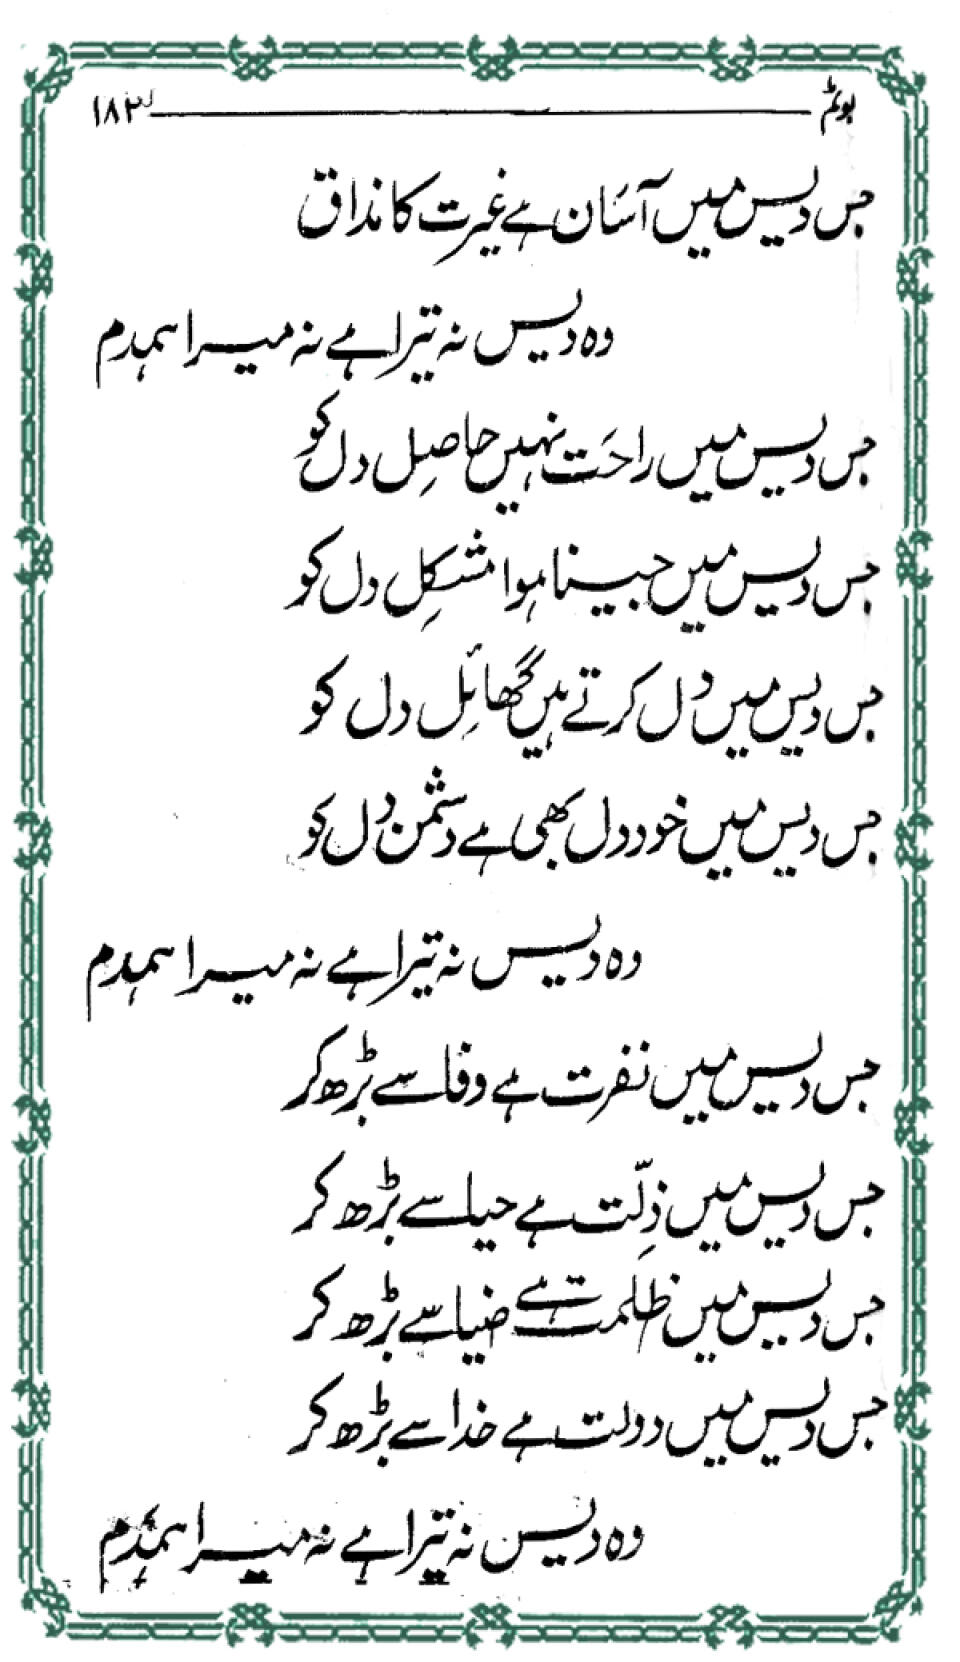 بوئم ۱۸۳
جس دیس میں آسَان ہے غیرت کا مذاق
وہ دیس نہ تیرا ہے نہ میرا ہمدم
جس دیس میں راحَت نہیں حاصِل دل کو
جس دیس میں جینا ہوا مشکِل دل کو
جس دیس میں دل کرتے ہیں گھائِل دل کو
جس دیس میں خود دل بھی ہے دشمن دل کو
وہ دیس نہ تیرا ہے نہ میرا ہمدم
جس دیس میں نفرت ہے وفا سے بڑھ کر
جس دیس میں ذِلّت ہے حیا سے بڑھ کر
جس دیس میں ظلمت ہے ضیا سے بڑھ کر
جس دیس میں دولت ہے خدا سے بڑھ کر
وہ دیس نہ تیرا ہے نہ میرا ہمدم